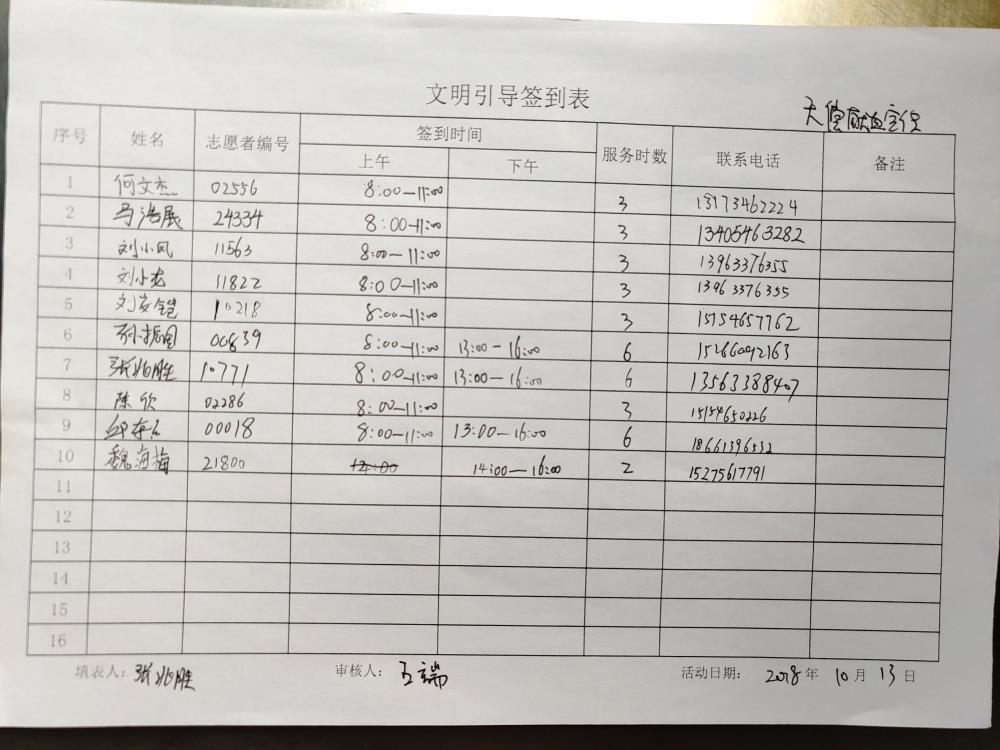 文明引导签到表
天使献血宣传
序号 姓名 志愿者编号 签到时间 服务时数 联系电话 备注
上午 下午
1 何文杰 02556 8:00—11:00 3 13173462224
2 马浩展 24334 8:00-11:00 3 13405463282
3 刘小凤 11563 8:00—11:00 3 13963376355
4 刘小龙 11822 8:00-11:00 3 13963376355
5 刘安铠 10218 8:00—11:00 3 15154657762
6 孙振国 00839 8:00—11:00 13:00—16:00 6 15266092163
7 张兆胜 10771 8:00—11:00 13:00—16:00 6 13563388407
8 陈欣 02286 8:00—11:00 3 15154650226
9 00018 8:00—11:00 13:00—16:00 6 18661396532
10 魏海梅 21800 12:00 14:00—16:00 2 15275617791
11
12
13
14
15
16
填表人：张兆胜 审核人：王端 活动日期： 2018年 10月 13日